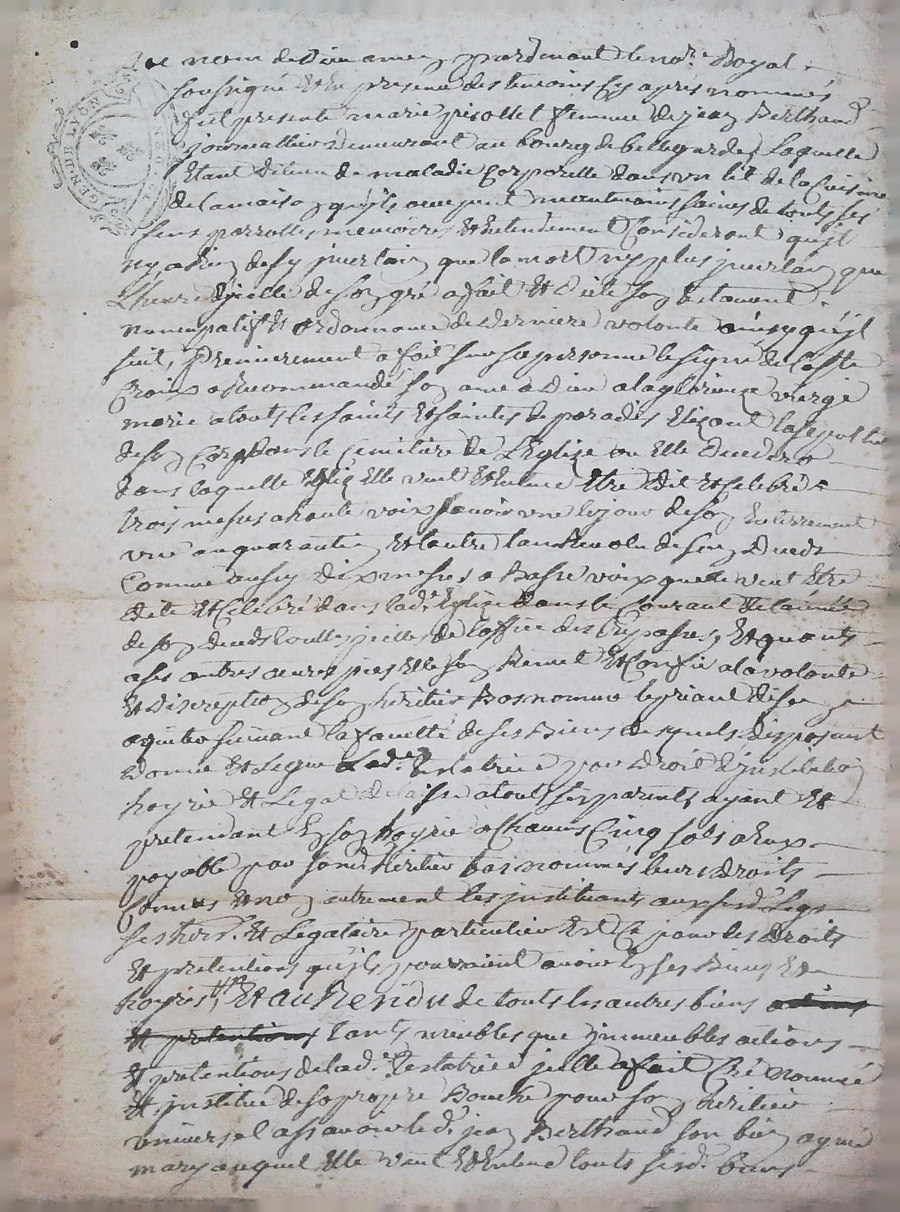 Au nom de Dieu amen, pardevant le no.re Royal
sousigné et en presence des temoins cy apres nommés
fut presente marie pisollet femme de jean Berthaud
journallier demeurant au bourg de bellegarde, Laquelle
Etant detenue de maladie corporelle dans un lit de la Cuisine
de la maison qu'ils occupent neantmoins saine de touts ses
sens parrolles memoires et Entendement Considerant qu'il
ny a rien de sy certain que la mort ny plus incertain que
L'heure d'icelle de son gré a fait et dicté son testament
nuncupatif et ordonnance de derniere volonté ainsy qu'il
suit, Premierement a fait sur sa personne le signe de la Ste
Croix a Recommandé son ame a Dieu a la glorieuze vierge
marie a touts les saints et saintes de paradis Elizant la sepulture
de son Corp dans le Cemitiere de L'Eglise ou Elle decedera
dans laquelle Eglize Elle veut et Entend Etre dit et celebré
trois messes a haute voix savoir une le jour de son Enterrement
une au quarantin et l'autre l'an Revolu de son Deceds
Comme aussy dix messes a Basse voix quelle veut Etre
dite et Celebré dans lad.e Eglize dans le Courant de l'année
de son deceds touttes icelles de L'office des trepassés, Et quants
a ses autres œuvres pies Elle s'en Remet et Confie a la volonté
et Discretion de son heritier Bas nommé le priant de s'en
aquiter suivant la faculté de ses Biens desquels disposant
donne et Legue Lad.e testatrice par Droit d'institution
hoyrie et Legat delaisse a touts ses parents ayant et
pretendant En son hoyrie a Chacuns Cinq sols
payable par sond. heritier bas nommés leurs droits
connus et non autrement les instituants auxsusd. Legs
ses hers. et Legataire particulier Et Ce pour les droits
et pretentions qu'ils pourroient avoir En ses Biens et
hoyries, Et au Rendu de touts les autres biens actions
et pretentions tants meubles que immeubles actions
et pretentions de lad.e Testatrice jcelle a fait Créé nommé
et institué de sa propre Bouche pour son heritier
universel assavoir led. jean Berthaud son bien aymé
mary auquel Elle veut et Entend touts sesd. biens
GEN DE LYON